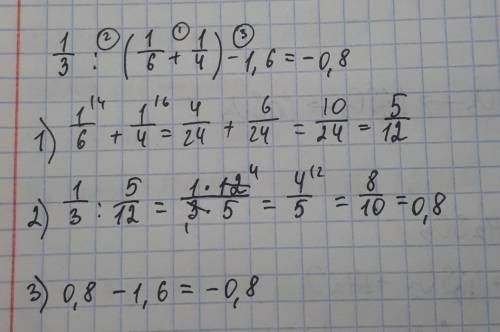 1/3 :② (1/6 +① 1/4) -③ 1,6 = -0,8
1) 1/6^(14 + 1/4^(16 = 4/24 + 6/24 = 10/24 = 5/12
2) 1/3 : 5/12 = 1·12^4/3₁·5 = 4/5^(12 = 8/10 = 0,8
3) 0,8 - 1,6 = -0,8